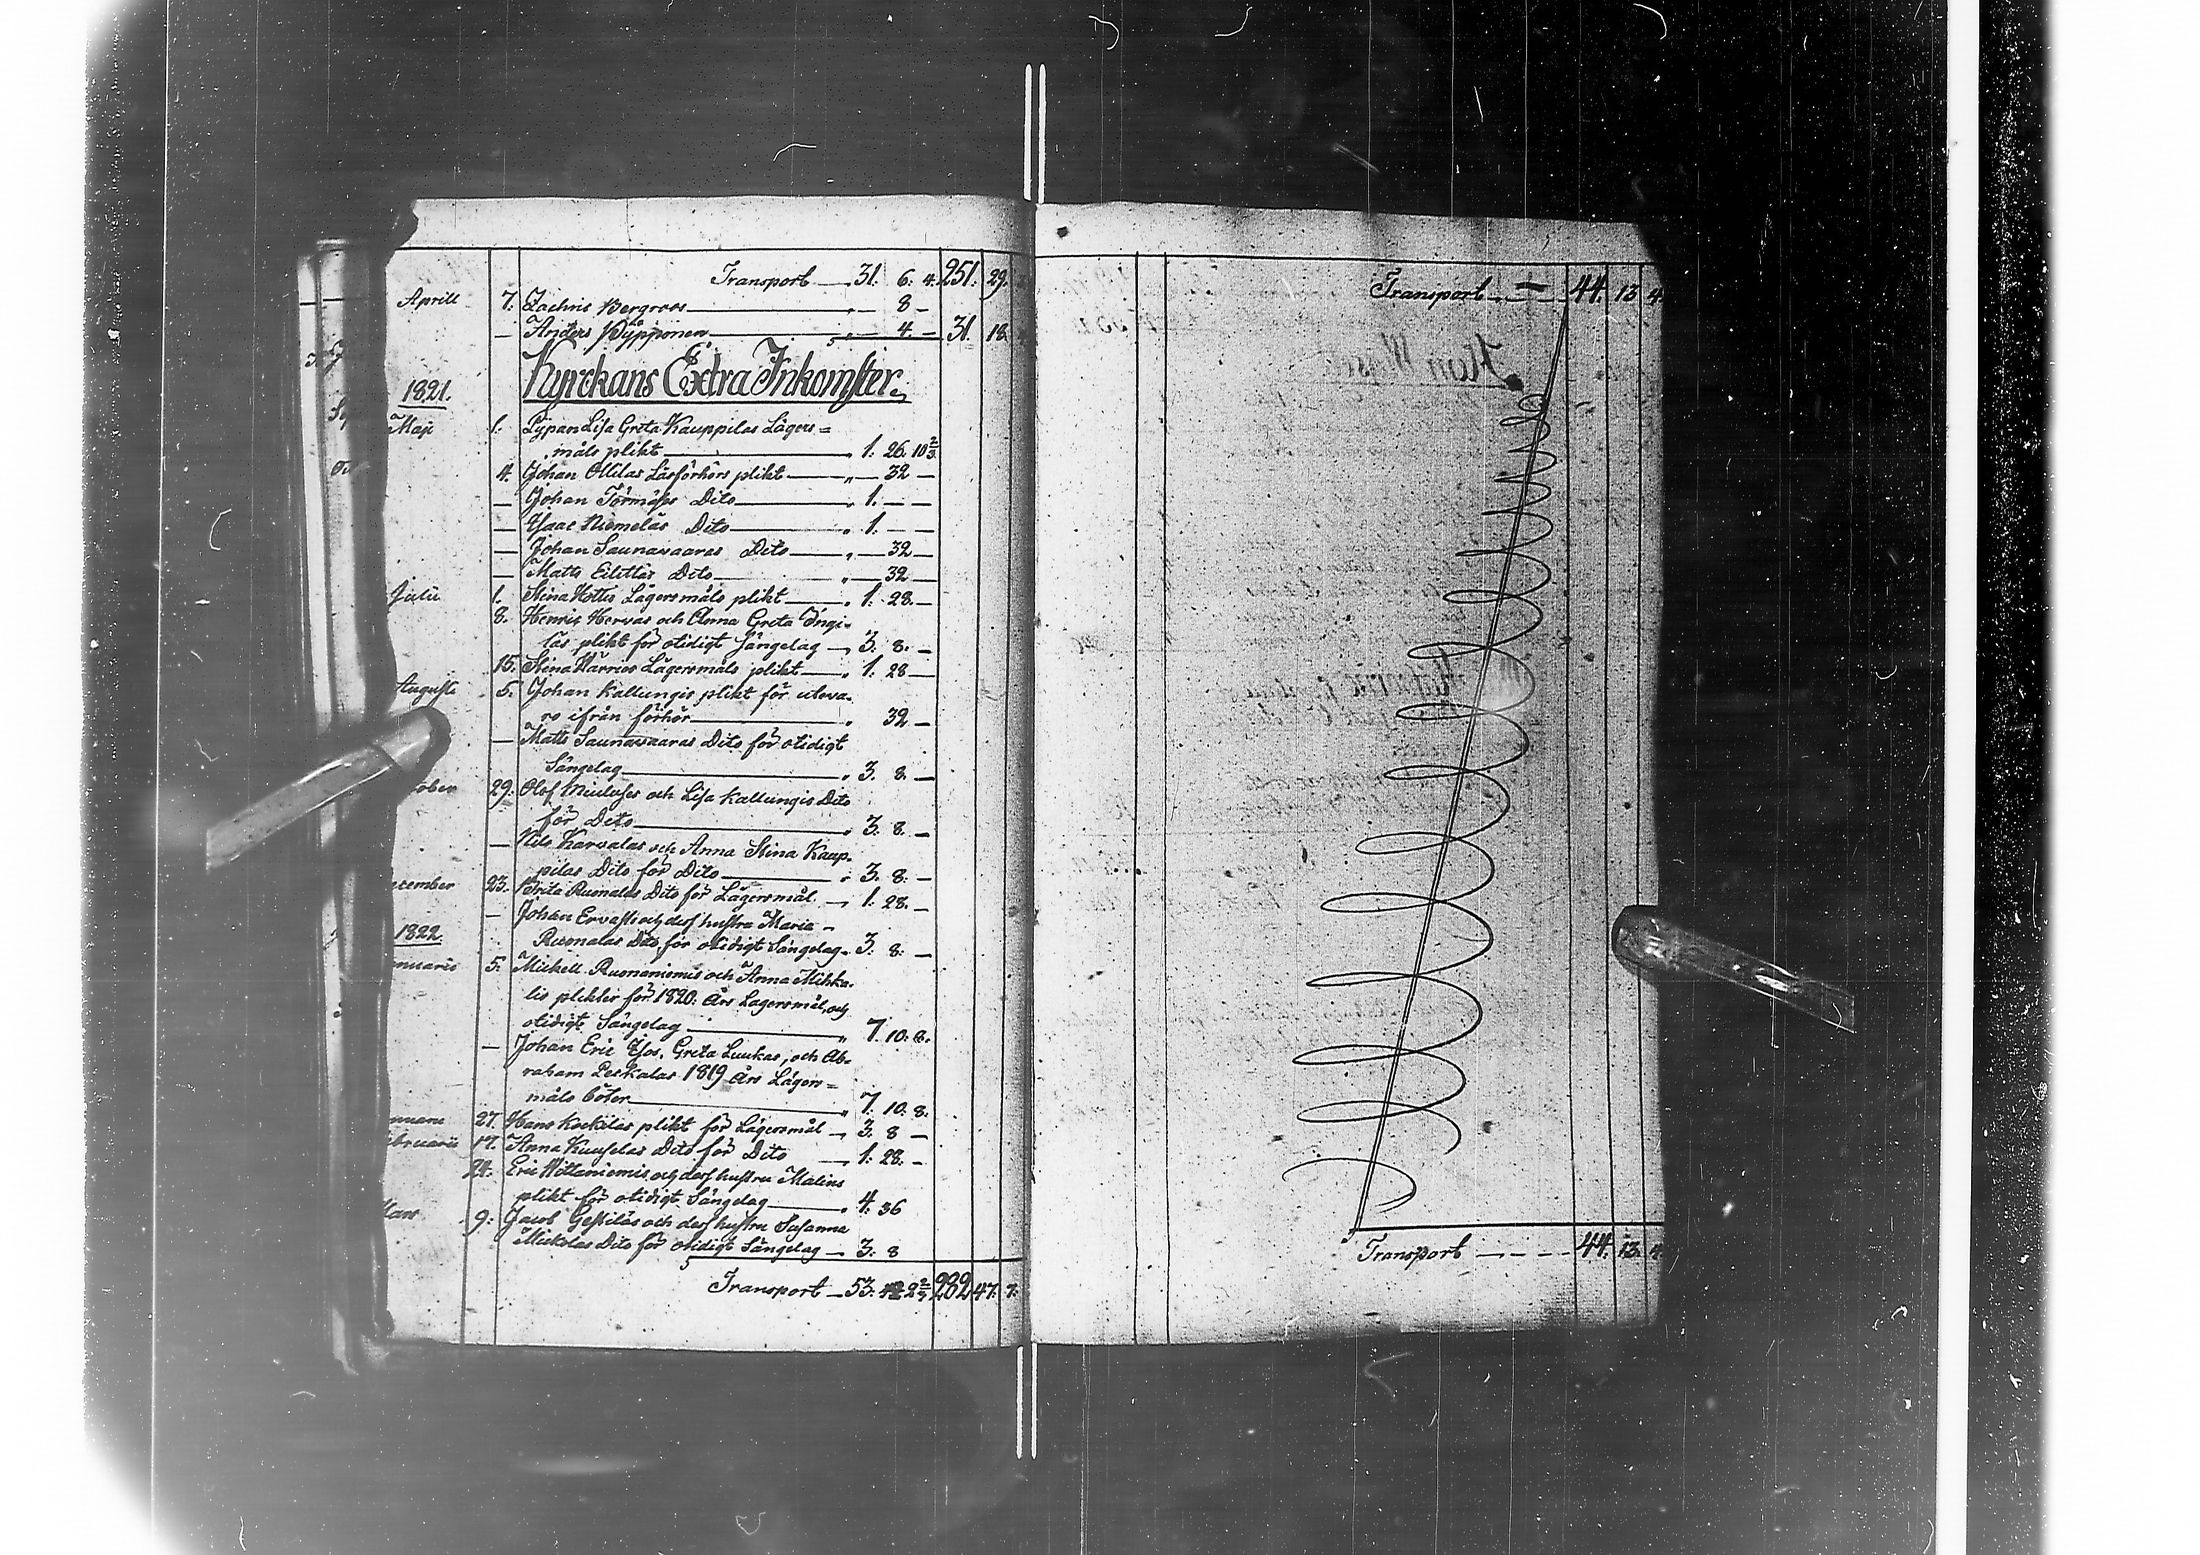 Transport — 31. 6. 4. 251. 29.
Aprill 7. Zachris Bergroos — 8 —
— Anders Pÿpponen — 4 — 31. 18.
Kyrckans Extra Inkomster.
1821.
Maji 1. Pÿpan Lisa Greta Kauppilas Lägers=
måls plikt — 1. 26. 10 2/3
4. Johan Ollilas Läsförhörs plikt — 32 —
— Johan Törmäses Dito — 1. — —
— Isaac Niemeläs Dito — 1. — —
— Johan Saunavaaras Dito — 32 —
— Matts Eilettäs Dito — 32 —
Julii 1. Stina Hottis Lägersmåls plikt — 1. 28. —
8. Henric Hervas och Anna Greta Ingi-
läs plikt för otidigt Sängelag — 3. 8. —
15. Stina Wärrios Lägersmåls plikt — 1. 28 —
Augusti 5. Johan Kallungis plikt för uteva-
ro ifrån förhör — 32 —
— Matts Saunavaaras Dito för otidigt
Sängelag — 3. 8. —
tober 29. Olof och Lisa Kallungis Dito
för Dito — 3. 8. —
— Nils Karvalas och Anna Stina Kaup-
pilas Dito för Dito — 3. 8. —
ecember 23. Brita Ruonalas Dito för Lägersmål — 1. 28. —
— Johan Ervasti och dess hustru Maria
Ruonalas Dito för otidigt Sängelag — 3. 8. —
1822.
nuarii 5. Mickell Ruonaniemis och Anna Mihka-
lis plikter för 1820. Års Lagersmål, och
otidigt Sängelag — 7. 10. 8.
— Johan Eric Isos, Greta Luukas, och Ab-
raham Perkalas 1819 Års Lägers=
måls böter — 7. 10. 8.
nuarii 27. Hans Kockilas plikt för Lägersmål — 3. 8 —
ebruarii 17. Anna Kuuselas Dito för Dito — 1. 28. —
24. Eric Nottaniemis och dess hustru Malins
plikt för otidigt Sängelag — 4. 36
Mars 9. Jacob Gestiläs och dess hustru Susanna
Mickolas Dito för otidigt Sängelag — 3. 8
Transport — 53. 2 2/3 282 47. 7.
Transport — 44. 13 4.
Transport — — — 44. 13. 4.